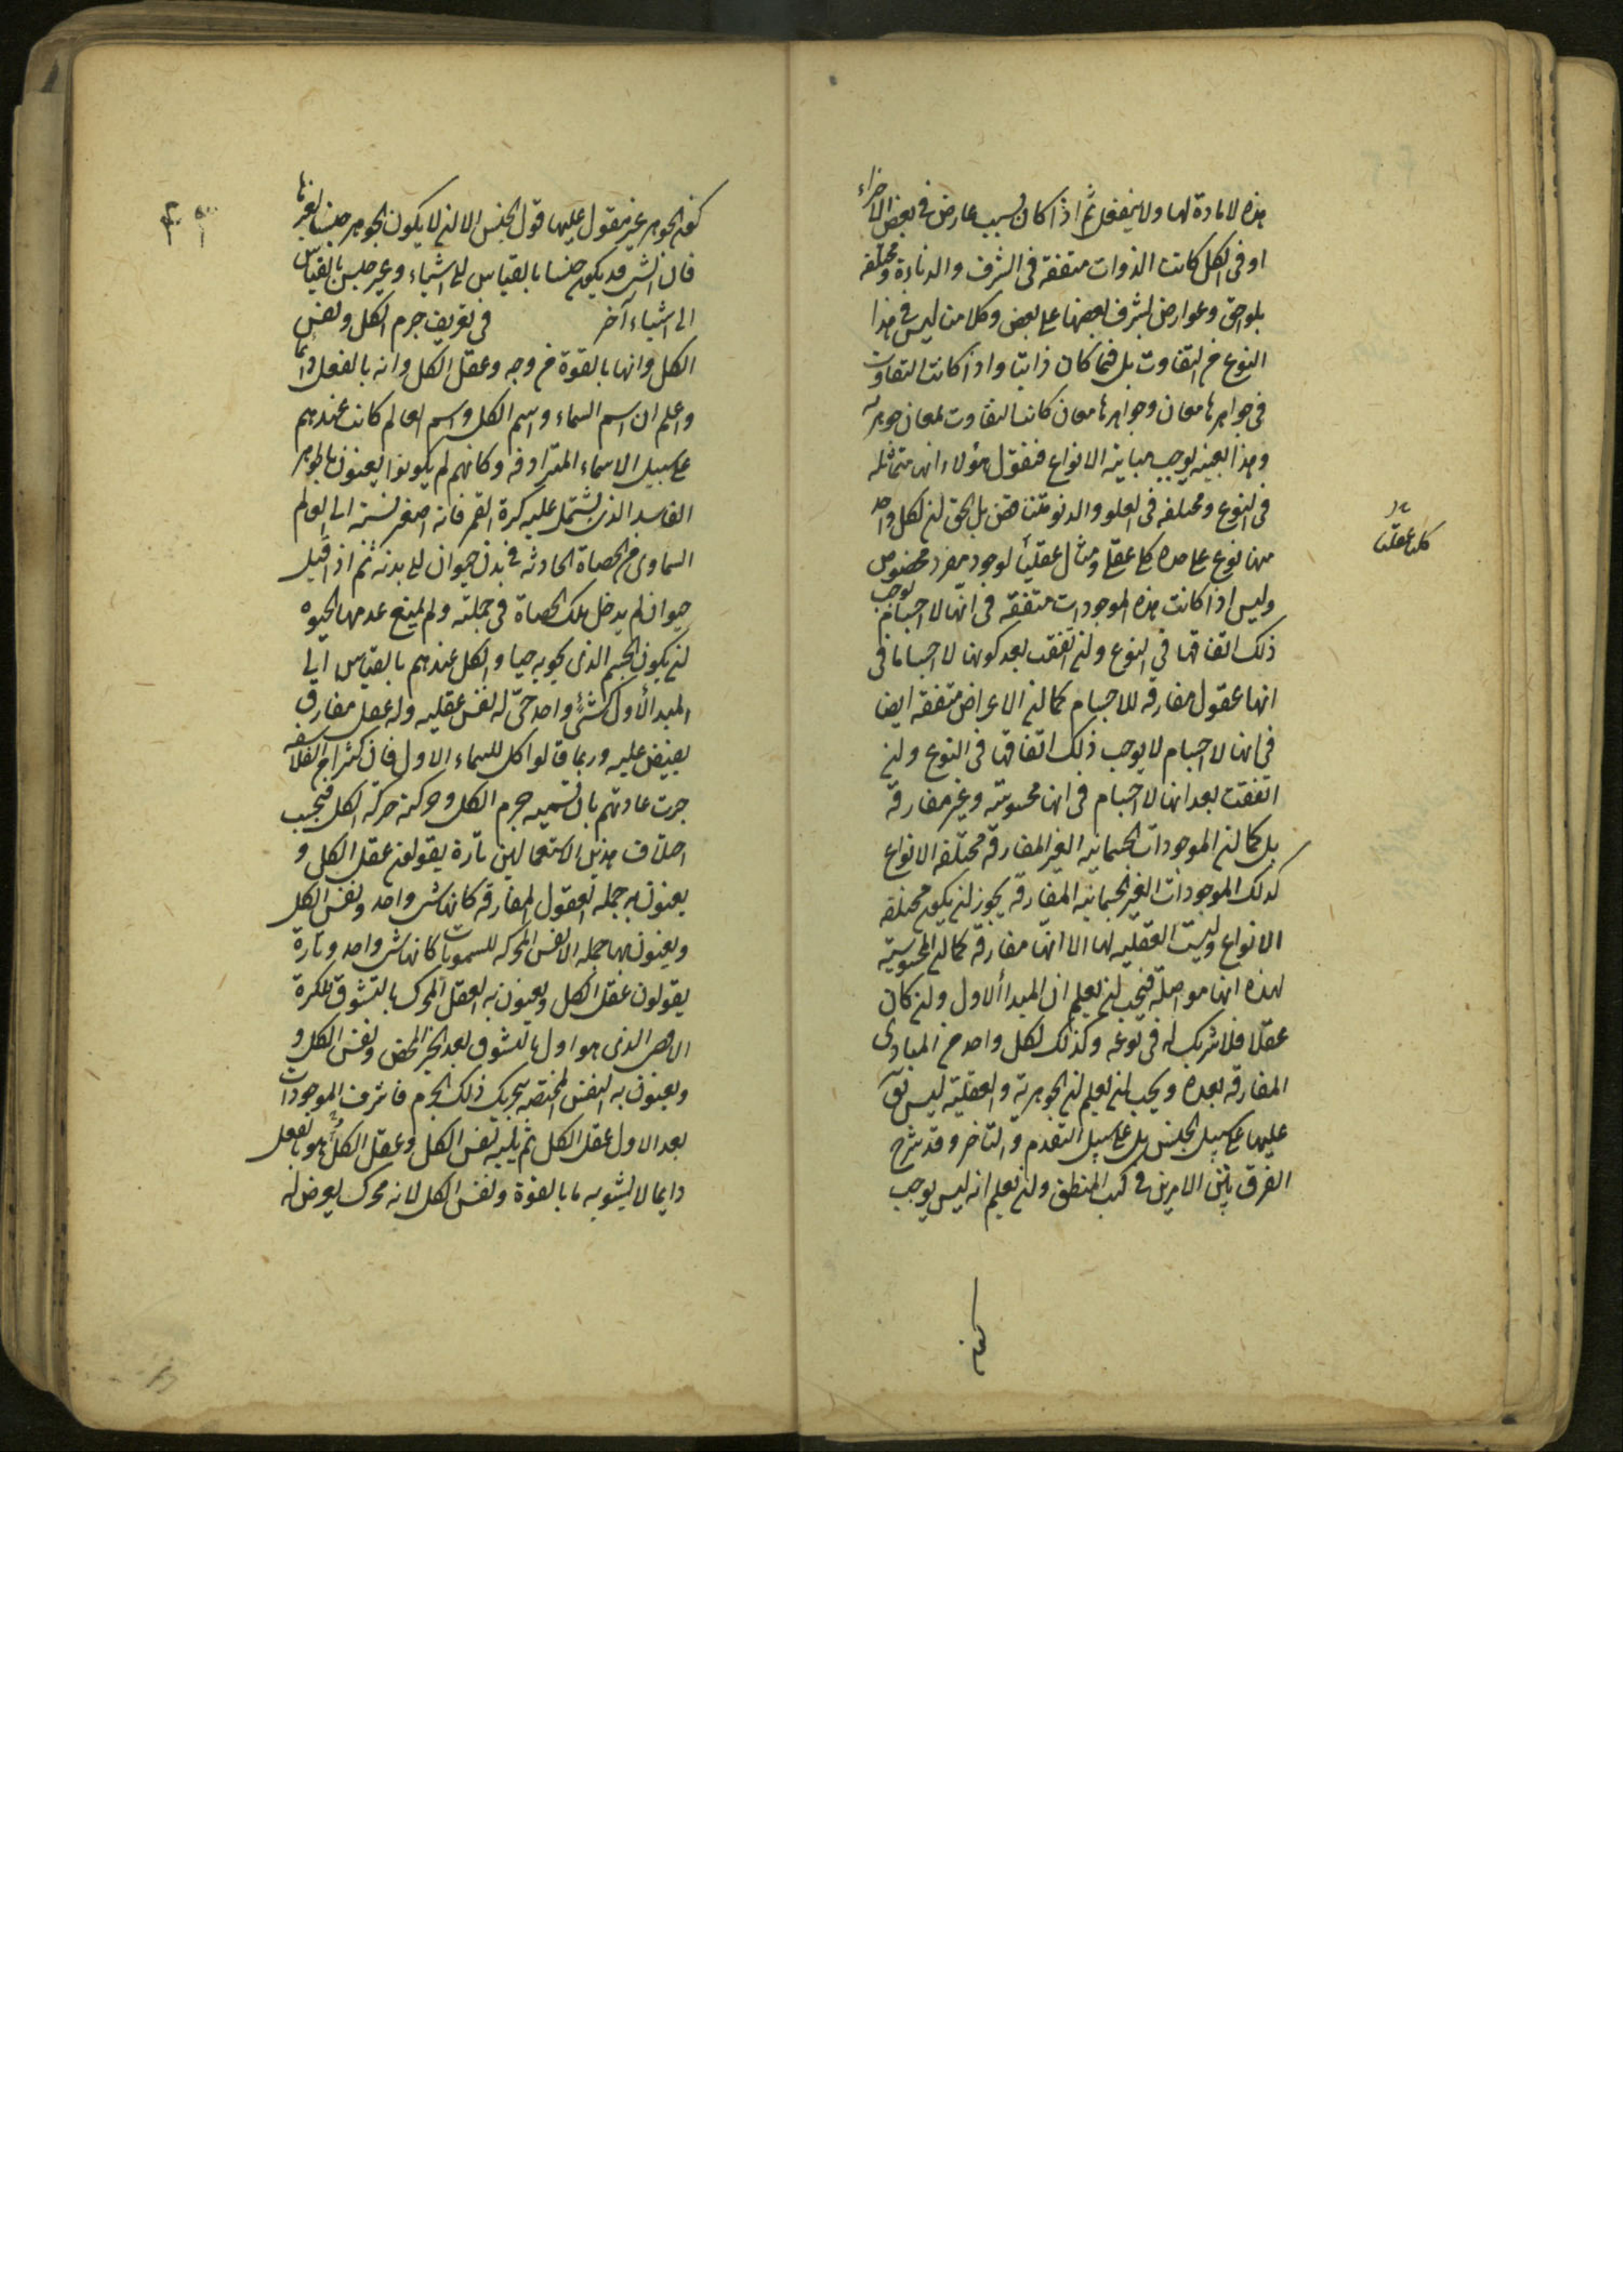 هذه لا مادة لها ولا ينفعل ثم اذا كان بسبب عارض فى بعض الاجزاء
او فى الكل كانت الذوات متفقة فى الشرف والدناءة ومختلفه
بلواحق وعوارض لشرف بعضها على بعض وكلامنا ليس فى هذا
النوع من التفاوت بل فيما كان ذاتيا واذا كانت التفاوت
فى جواهرها معان وجواهرها معان كانت التفاوت لمعان جوهريه
وهذا بعينه يوجب مباينة الانواع فنقول هؤلاء انها متماثله
فى النوع ومختلفه فى العلو والدنو متناقض بل الحق ان لكل واحد
منها نوع على حده كلى عقلى ومثال عقليا لوجود مفرد مخصوص
وليس اذا كانت هذه الموجودات متفقة فى انها لا اجسام يوجب
ذلك اتفاقها فى النوع وان اتفقت بعد كونها لا اجساما فى
انها عقول مفارقه للاجسام كما ان الاعراض متفقه ايضا
فى انها لا اجسام لا يوجب ذلك اتفاقها فى النوع وان
اتفقت بعد انها لا اجسام فى انها محسوسة وغير مفارقة
بل كما ان الموجودات الجسمانيه الغير المفارقة مختلفه الانواع
كذلك الموجودات الغير الجسمانيه المفارقه يجوز ان يكون مختلفه
الانواع وليست العقليه لها الا انها مفارقة كما ان المحسوسية
لهذه انها مواصله فيجب ان يعلم ان المبدأ الاول وان كان
عقلا فلا شريك له فى نوعه وكذلك لكل واحد من المبادى
المفارقه بعده ويجب ان يعلم ان الجوهرية والعقلية ليس يق
عليها على سبيل الجنس بل على سبيل التقدم والتاخر وقد شرح
الفرق بين الامرين فى كتب المنطق وان يعلم انه ليس يوجب
كون
كليا عقليا
كون الجوهر غير مقول عليها قول الجنس الا ان لا يكون الجوهر جنسا لغيرها
فان الشى قد يكون جنسا بالقياس الى اشياء وغير جنس بالقياس
الى اشياء آخر فى تعريف جرم الكل ونفس
الكل وانها بالقوة من وجه وعقل الكل وانه بالفعل دائما
واعلم ان اسم السماء واسم الكل واسم العالم كانت عندهم
على سبيل الاسماء المترادفه وكانهم لم يكونوا يعتنون بالجوهر
الفاسد الذى يشتمل عليه كرة القمر فانه اصغر نسبته الى العالم
السماوى من الحصاة الحادثه فى بدن حيوان الى بدنه ثم اذ اقيل
حيوان لم يدخل تلك الحصاة فى جملته ولم يمنع عدمها الحيوه
ان يكون الجسم الذى يحويه حيا والكل عندهم بالقياس الى
المبدأ الاول كشئ واحد حى له نفس عقليه وله عقل مفارق
يفيض عليه وربما قالوا كل للسماء الاول فان كثيرا من الفلاسفه
جرت عادتهم بان تسميه جرم الكل وحركته حركة الكل فبحسب
اختلاف هذين الاستعمالين تارة يقولون عقل الكل و
يعنون به جمله العقول المفارقه كانها شى واحد ونفس الكل
ويعنون بها جمله الانفس المحركه للسموات كانها شى واحد وتارة
يقولون عقل الكل ويعنون به العقل المحرك بالتشوق للكرة
الاقصى الذى هو اول بالتشوق بعد الخير المحض ونفس الكل و
ويعنون به النفس المختصه بتحريك ذلك الجرم فاشرف الموجودات
بعد الاول عقل الكل ثم يليه نفس الكل وعقل الكل هو بالفعل
دايما لا يشوبه ما بالقوة ونفس الكل لانه محرك يعرض له